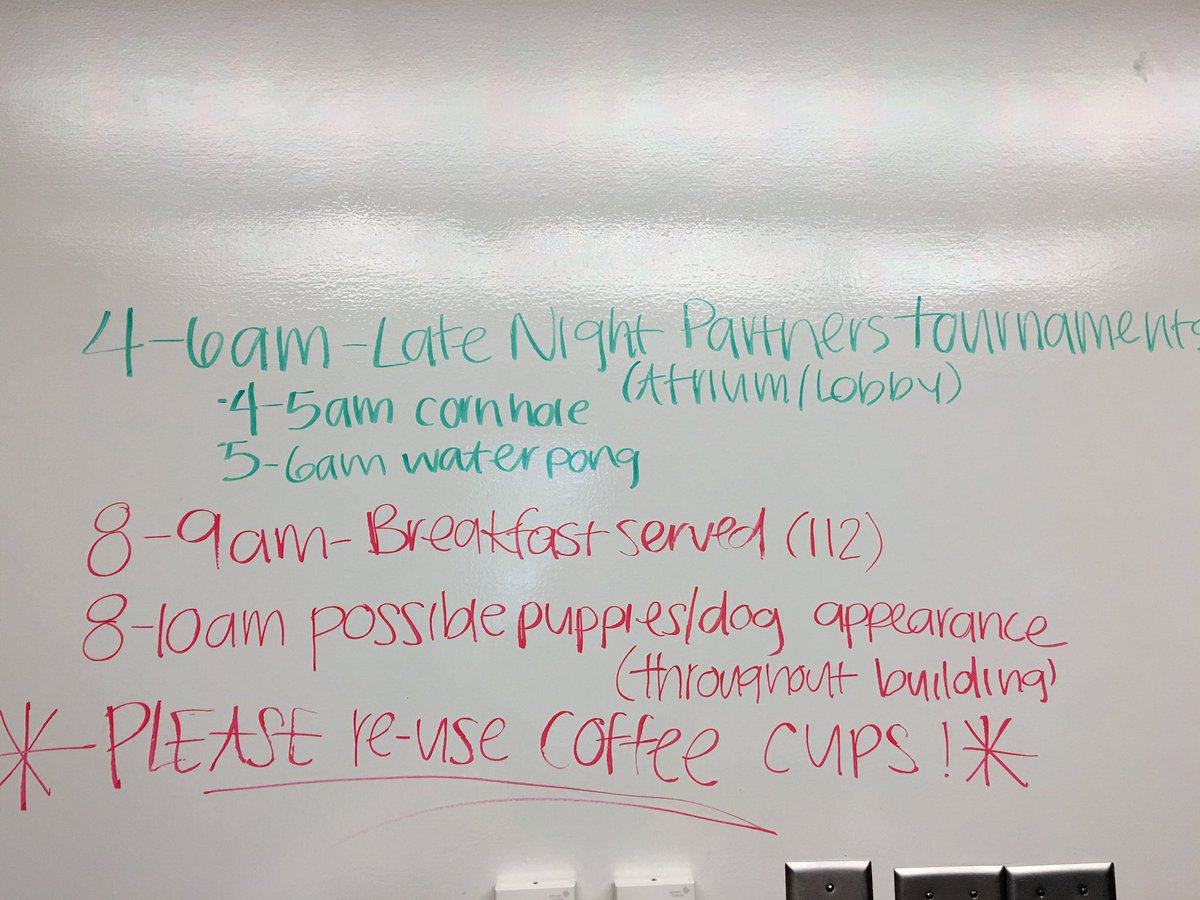 4-6am - Late Night Partners tournaments
(Atrium/Lobby)
·4-5am cornhole
5-6am water pong
8-9am- Breakfast served (112)
8-10am possible puppies/dog appearance
(throughout building)
* PLEASE re-use coffee cups! *